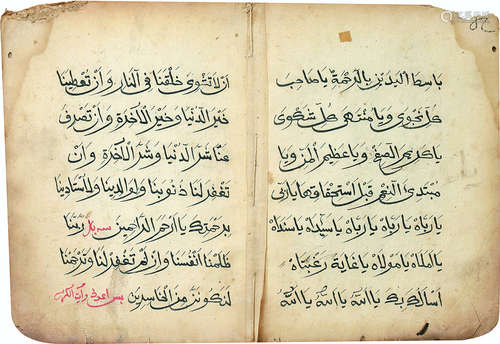 باسط اليدين بالرحمة يا صاحب
كل نجوى ويا منتهى كل شكوى
يا كريم الصفح ويا عظيم المن ويا
مبتدئ النعم قبل استحقاقها يا ربي
يا رباه يا رباه يا رباه يا سيداه يا سيداه
يا املاه يا مولاه يا غاية رغبتاه
اسالك بك يا الله يا الله يا الله
ان لا تشوى خلقنا في النار وان تعطينا
خير الدنيا وخير الاخرة وان تصرف
عنا شر الدنيا وشر الاخرة وان
تغفر لنا ذنوبنا ولوالدينا ولاستادينا
برحمتك يا ارحم الراحمين ربنا
ظلمنا انفسنا وان لم تغفر لنا وترحمنا
لنكونن من الخاسرين